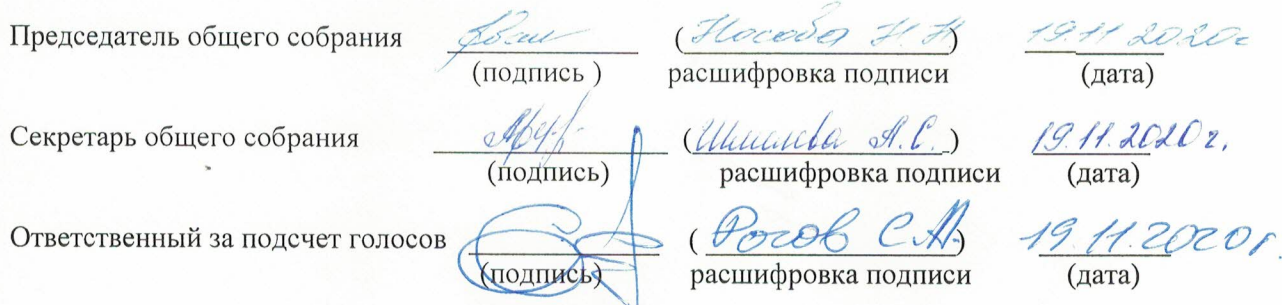 Председатель общего собрания (Носова Н.Н) 19.11 2020г
(подпись ) расшифровка подписи (дата)
Секретарь общего собрания ( А.С. ) 19.11.2020г.
(подпись) расшифровка подписи (дата)
Ответственный за подсчет голосов ( Рогов С.А.) 19.11.2020г.
(подпись) расшифровка подписи (дата)